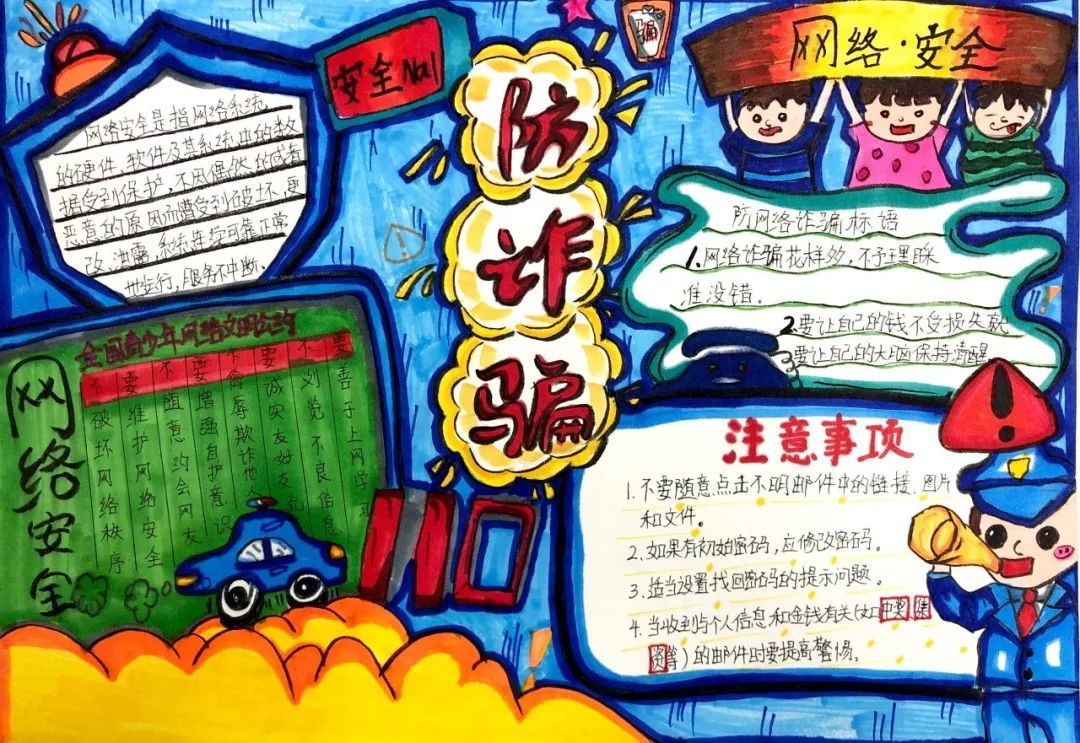 网络安全是指网络系统
的硬件、软件及其系统中的数
据受到保护,不因偶然的或者
恶意的原因而遭受到破坏、更
改、泄露,系统连续可靠正常
地运行,服务不中断。
安全No.1
防
诈
骗
骗
网络·安全
防网络诈骗标语
1.网络诈骗花样多,不予理睬
准没错。
2.要让自己的钱不受损失就
要让自己的大脑保持清醒
网络安全
全国青少年网络文明公约
要善于上网学习
不浏览不良信息
要诚实友好交流
不侮辱欺诈他
要增强自护意识
不随意约会网友
要维护网络安全
不破坏网络秩序
110
注意事项
1.不要随意点击不明邮件中的链接、图片
和文件。
2.如果有初始密码,应修改密码。
3.适当设置找回密码的提示问题。
4.当收到与个人信息和金钱有关(如中奖、集
资等)的邮件时要提高警惕。